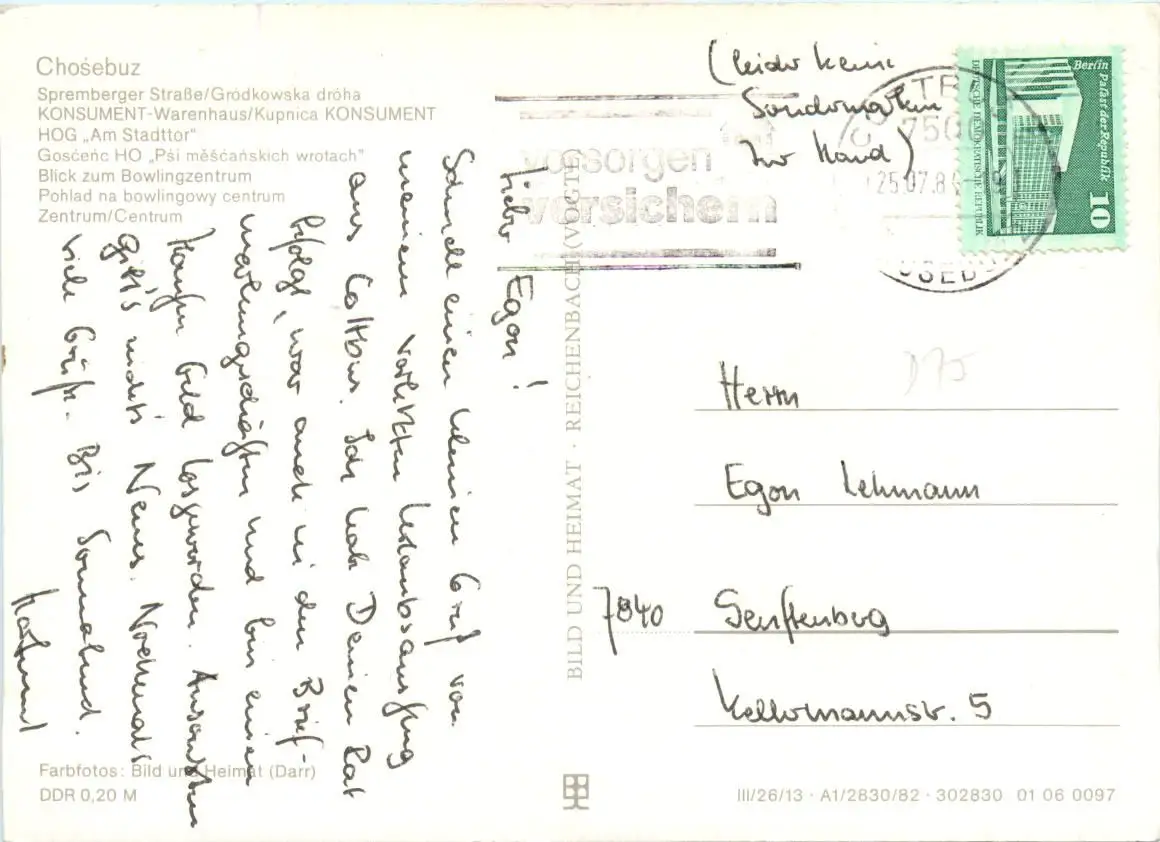 Chośebuz
Spremberger Straße/Gródkowska dróha
KONSUMENT-Warenhaus/Kupnica KONSUMENT
HOG „Am Stadttor"
Gosćeńc HO „Pśi měšćańskich wrotach"
Blick zum Bowlingzentrum
Pohlad na bowlingowy centrum
Zentrum/Centrum
Lieber Egon!
Schnell einen kleinen Gruß von
meinem vorletzten Urlaubsausflug
aus Cottbus. Ich habe Deinen Rat
befolgt, war auch in den Brief-
markengeschäften und bin einen
Haufen Geld losgeworden. Ansonsten
gibt's nichts Neues. Nochmals
viele Grüße. Bis Sonnabend.
Hartmut
Farbfotos: Bild und Heimat (Darr)
DDR 0,20 M
BILD UND HEIMAT · REICHENBACH (VOGTL)
(leider keine
Sondermarken
zur Hand)
vorsorgen
versichern
25.07.8
Berlin Palast der Republik
DEUTSCHE DEMOKRATISCHE REPUBLIK
10
Herrn
Egon Lehmann
7840 Senftenberg
Kellermannstr. 5
III/26/13 · A1/2830/82 · 302830 01 06 0097